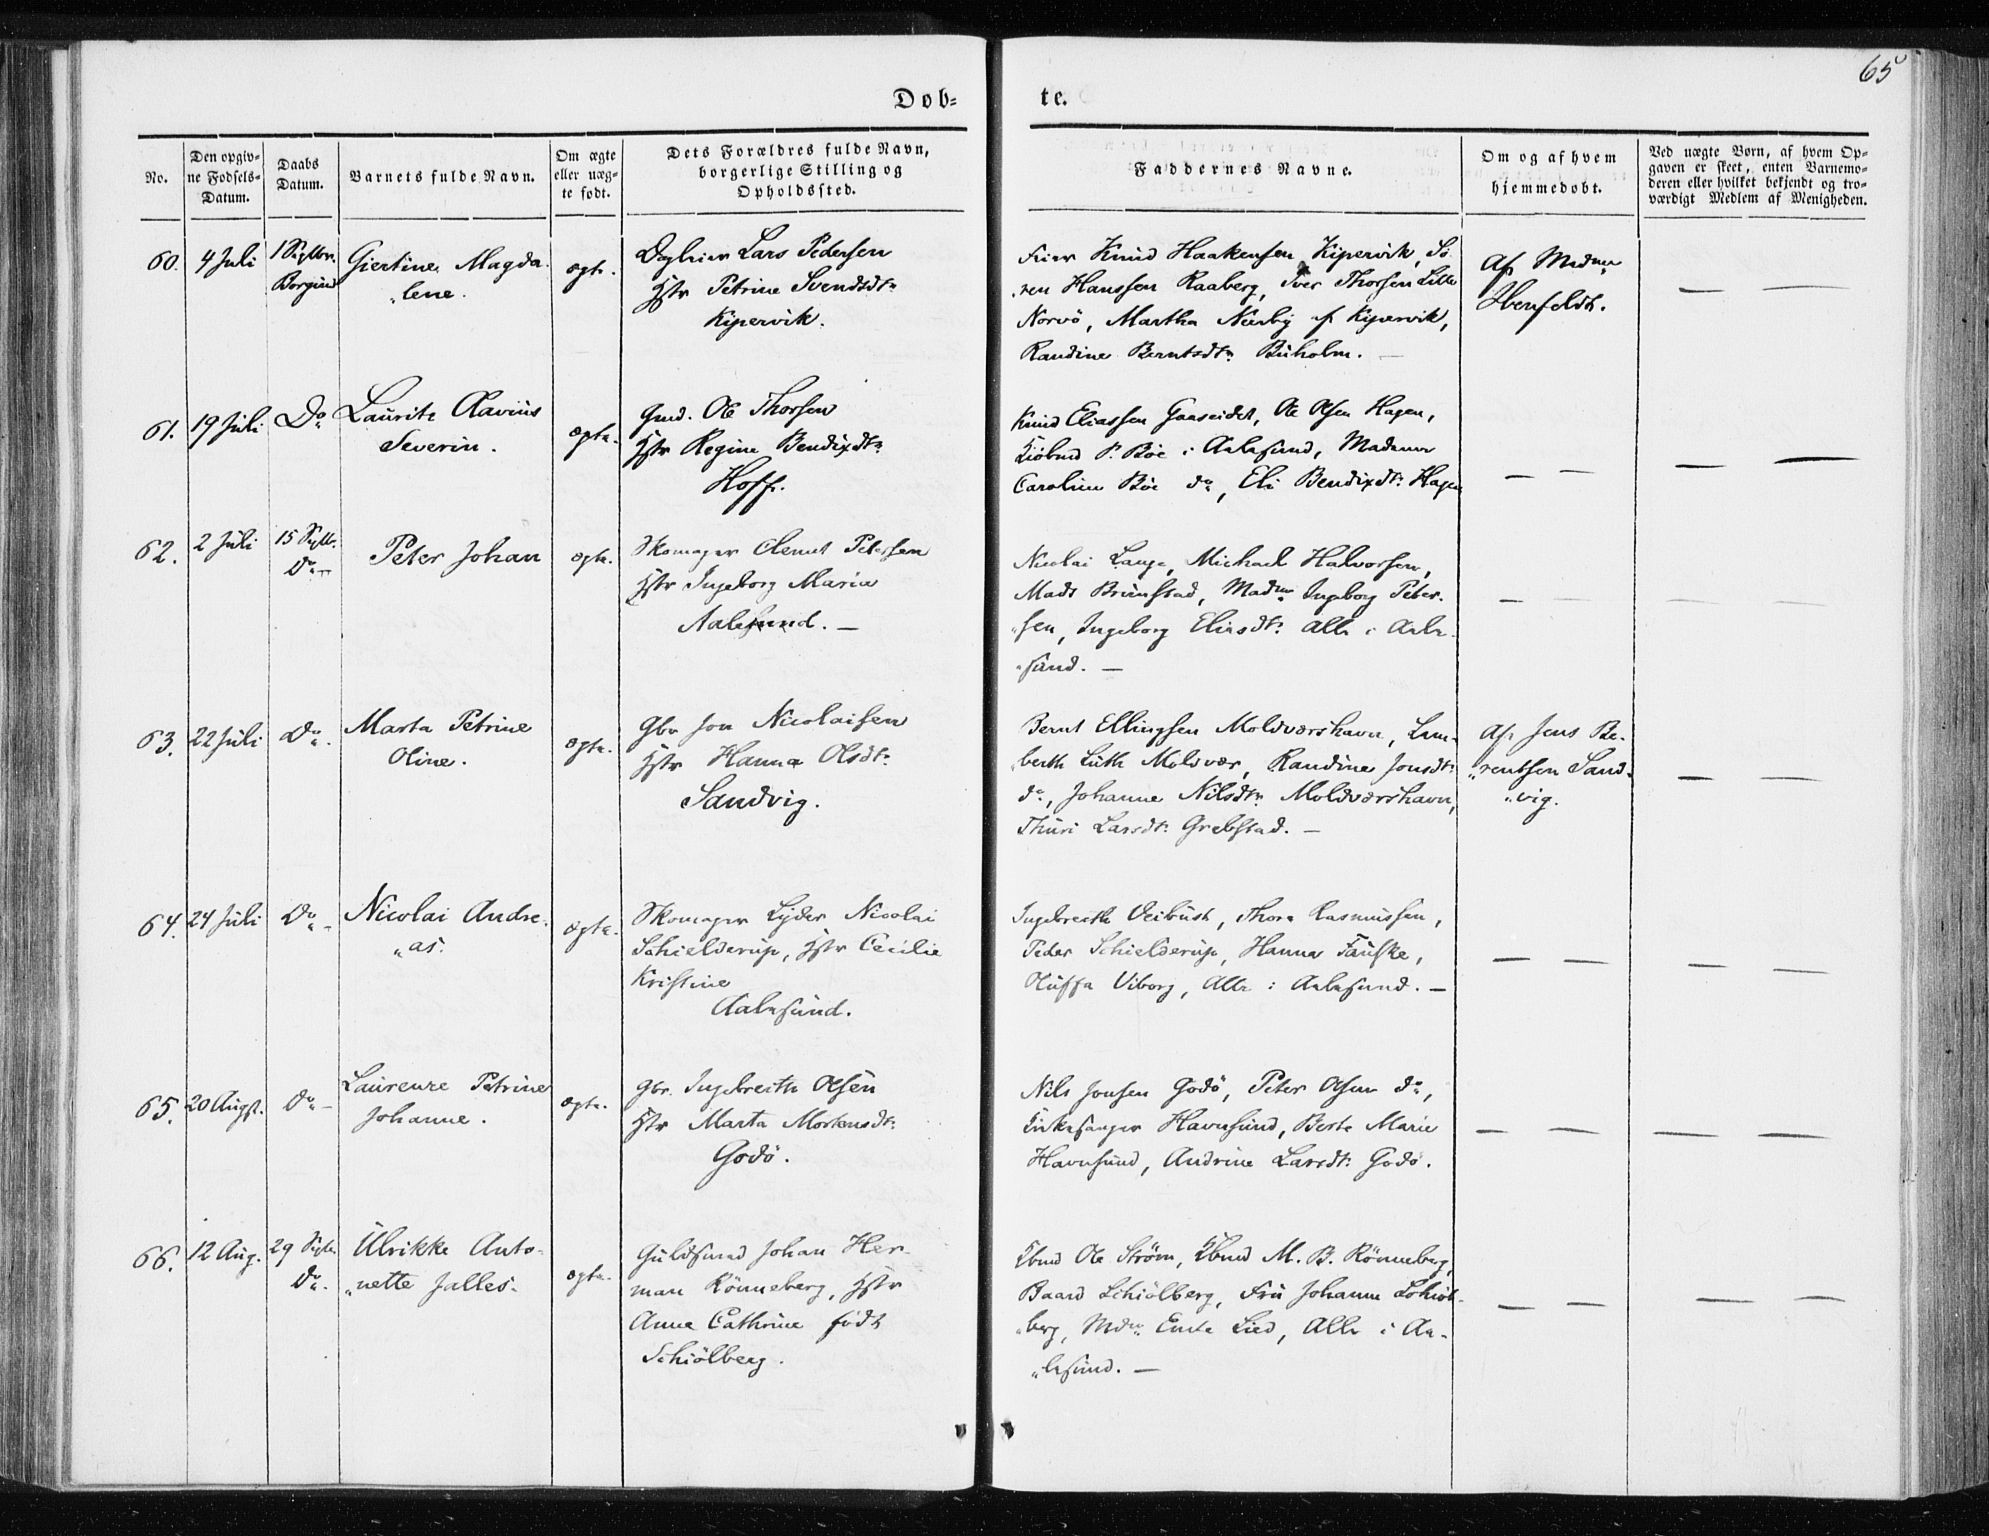 65
Døb-
te.
No.
Den opgiv-
ne Fødsels-
Datum.
Daabs
Datum.
Barnets fulde Navn.
Om ægte
eller uæg-
te født.
Dets Forældres fulde Navn,
borgerlige Stilling og
Opholdssted.
Faddernes Navne.
Om og af hvem
hjemmedøbt.
Ved uægte Børn, af hvem Op-
gaven er skeet, enten Barnemo-
deren eller hvilket bekjendt og tro-
værdigt Medlem af Menigheden.
60.
4 Juli
1 Septbr.
Borgund
Giertine Magda-
„lene.
ægte.
Lars Pedersen
Hstr Petrine Svendsdtr
Kipervik.
Knud Haakensen Kipervik, Sö-
„ren Hanssen Raaberg, Iver Thorsen Lille
Norvö, Martha Nerby af Kipervik,
Randine Berntsdtr Buholm. —
Af Madme
— —
61.
19 Juli
Do
Laurits Olavius
Severin.
ægte.
Gmd. Ole Thorsen
Hstr Regine Bendixdtr
Hoff.
Knud Eliassen Gaaseidet, Ole Olsen Hagen,
Kiöbmd P. Böe i Aalesund, Madame
Caroline Böe do, Eli Bendixdtr Hagen
— —
— —
62.
2 Juli
15 Septbr.
Do
Peter Johan
ægte.
Skomager Clemet Petersen
Hstr Ingeborg Maria
Aalesund. —
Nicolai Lange, Michael Halvorsen,
Mads Brunstad, Madme Ingeborg Peter-
„sen, Ingeborg Eliasdtr Alle i Aale-
„sund. —
— —
— —
63.
22 Juli
Do
Marta Petrine
Oline.
ægte.
Gbr Jon Nicolaisen
Hstr Hanna Olsdtr
Sandvig.
Bernt Ellingsen Moldværshavn, Lam-
„berth Luth Moldvær, Randine Jonsdtr
do, Johanne Nilsdtr Moldværshavn,
Thuri Larsdtr Grebstad. —
Af Jens Be-
„rentsen Sand-
„vig.
— —
64.
24 Juli
Do
Nicolai Andre-
„as.
ægte.
Skomager Lyder Nicolai
Schielderup, Hstr Cecilie
Kristine
Aalesund.
Ingebrecth Veibust, Thore Rasmussen,
Peder Schielderup, Hanna Fauske,
Oluffa Viborg, Alle i Aalesund. —
— —
— —
65.
20 Augst.
Do
Laurenze Petrine
Johanne.
ægte.
Gbr. Ingebrecth Olsen
Hstr Marta Mortensdtr
Godö.
Nils Jonsen Godö, Peter Olsen do,
Kirkesanger Havnsund, Berte Marie
Havnsund, Andrine Larsdtr Godö.
— —
— —
66.
12 Aug.
29 Septbr
Do
Ulrikke Anto-
„nette Jalles.
ægte.
Guldsmed Johan Her-
man Rönneberg, Hstr
Anne Cathrine født
Schiölberg.
Kbmd Ole Strøm, Kbmd M. B. Rönneberg,
Baard Schiölberg, Fru Johanne Schiöl-
„berg, Mdme Lied, Alle i Aa-
„lesund. —
— —
— —